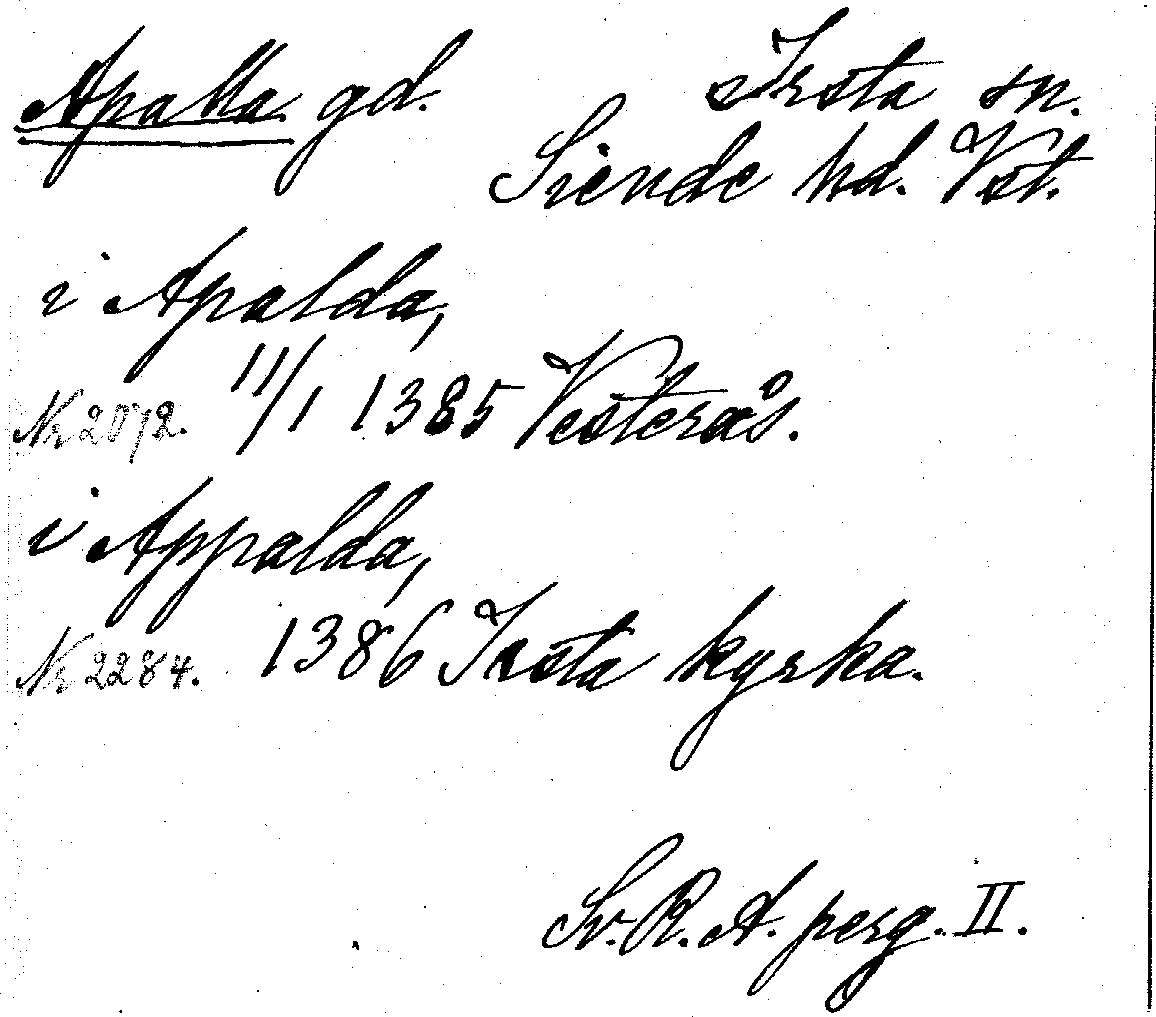 Apalla gd. Irsta sn.
Siende hd. Vst.
i Apalda,
Nr 2072. 11/1 1385 Vesterås.
i Appalda,
Nr 2284. 1386 Irsta kyrka.
Sv. R. A. perg. II.